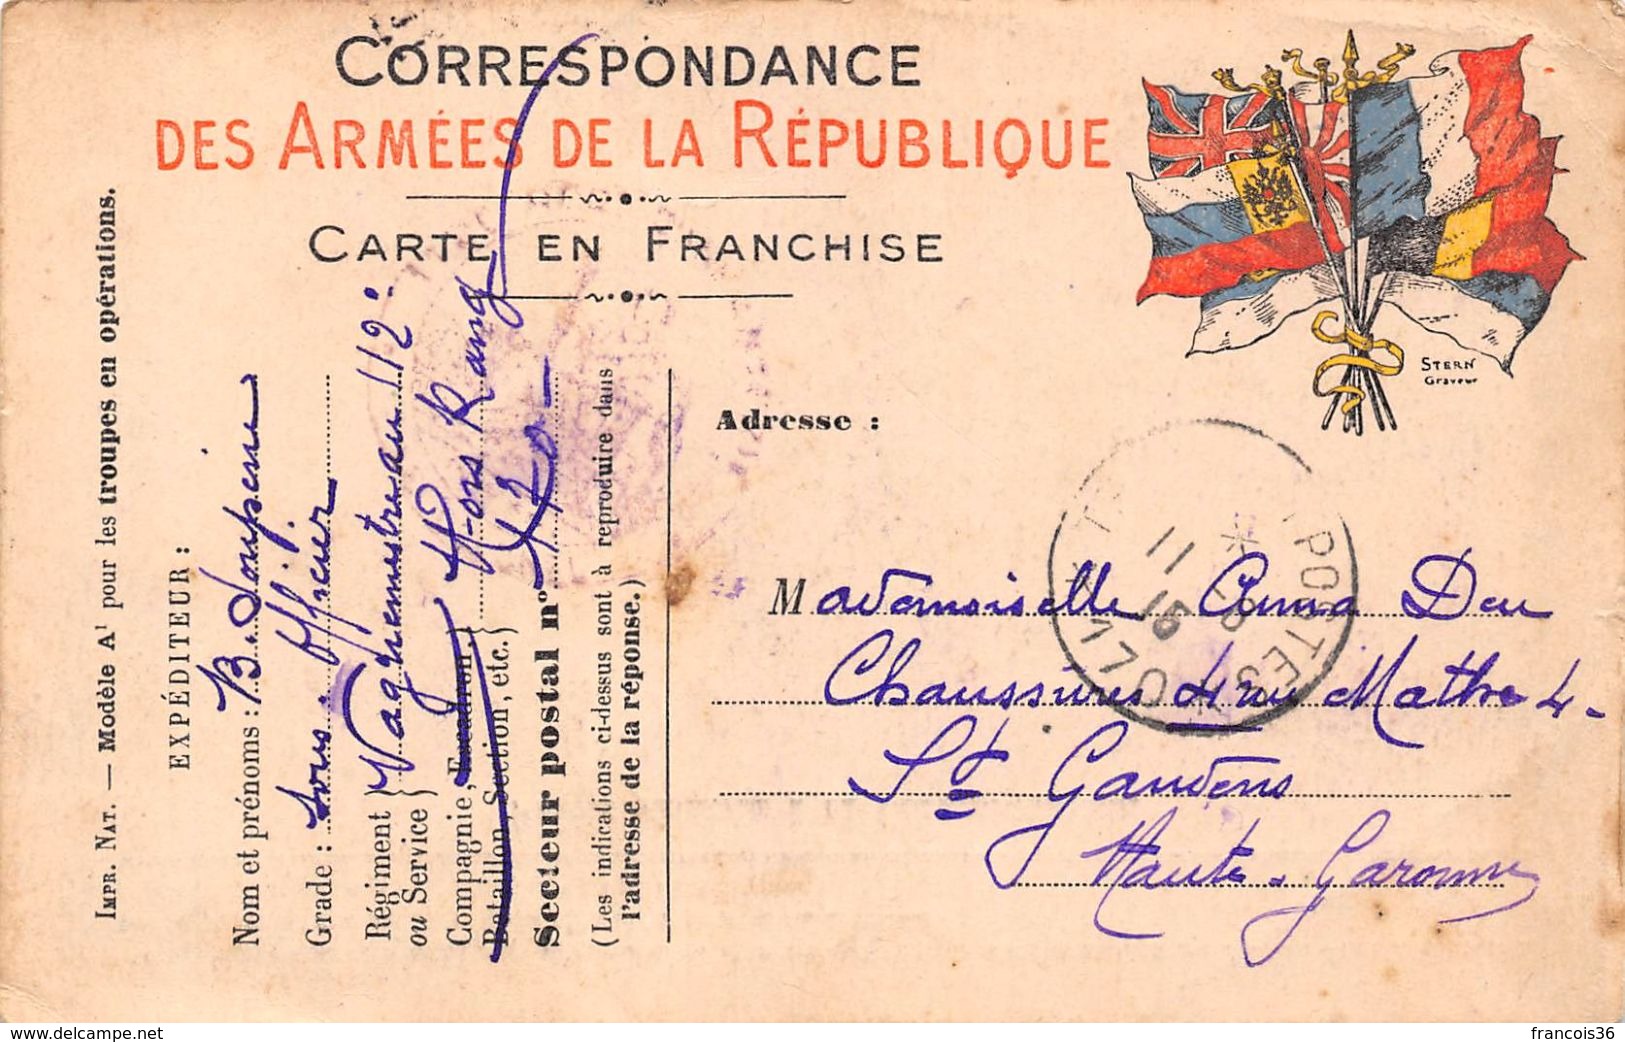 CORRESPONDANCE
DES ARMÉES DE LA RÉPUBLIQUE
CARTE EN FRANCHISE
STERN
Graveur
IMPR. NAT. — Modèle A¹ pour les troupes en opérations.
EXPÉDITEUR :
Nom et prénoms : B.
Grade : Sous. Officier
Régiment ou Service } Vaguemestre au 112e
Compagnie, Escadron, Bataillon, Section, etc. } Hors Rang
Secteur postal n°
(Les indications ci-dessus sont à reproduire dans
l'adresse de la réponse.)
Adresse :
Mademoiselle Anna Deu
Chaussures 4 rue Mathe 4.
St Gaudens
Haute-Garonne
POSTES
11
15
francois36